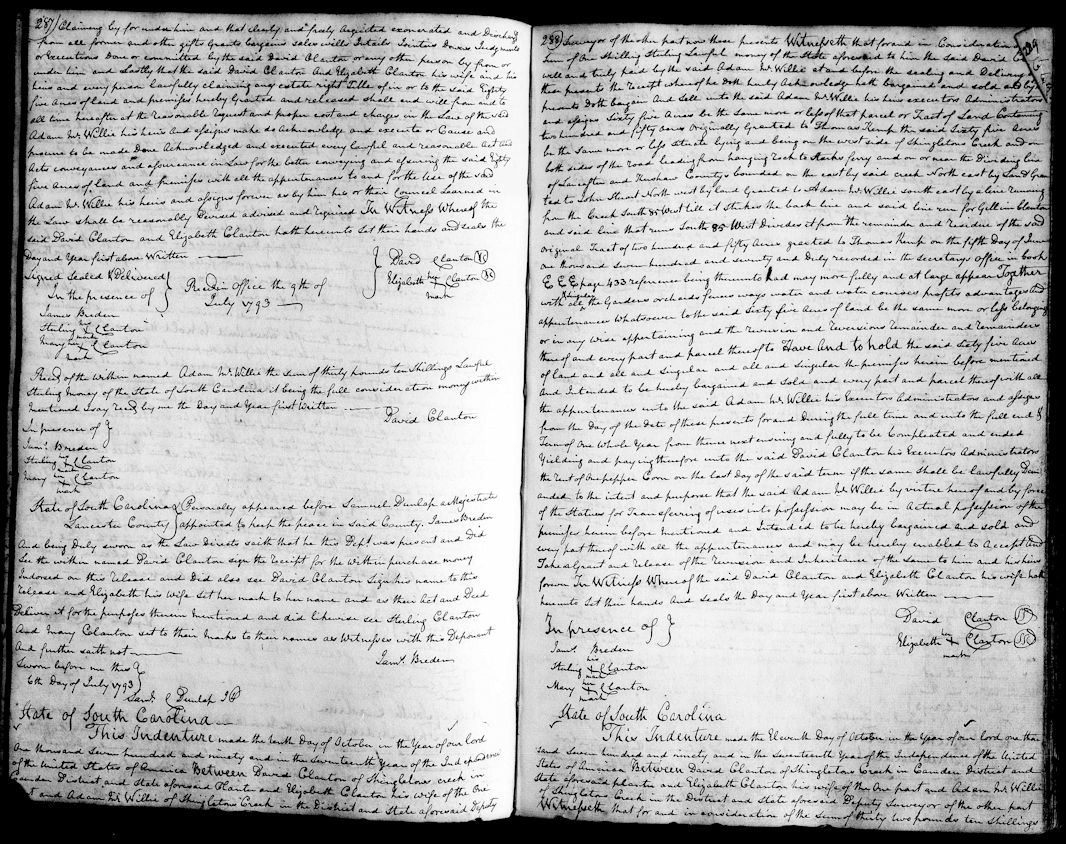 287) Claiming by for under him and that clearly and freely acquitted exonerated and Discharg'd
from all former and other gifts Grants bargains sales wills Intails Jointers Dowers Judgments
or Executions Done or committed by the said David Clanton or any other person by from or
under him and Lastly that the said David Clanton And Elizabeth Clanton his wife and his
heirs and every person lawfully claiming any estate right Title of in or to the said Eighty
five Acres of land and premises hereby Granted and released shall and will from and to
all time hereafter at the Reasonable request and proper cost and charges in the Law of the said
Adam Mc Willie his heirs And assigns make do Acknowledge and execute or Cause and
procure to be made Done Acknowledged and executed every lawful and reasonable Act and
Acts conveyances and assurance in Law for the better conveying and assuring the said Eighty
five Acres of land and premises with all the appurtenances to and for the Use of the said
Adam Mc Willie his heirs and assigns forever as by him his or their Council Learned in
the Law shall be reasonably Devised advised and required In Witness Whereof the
said David Clanton and Elizabeth Clanton hath hereunto Set their hands and seals the
Day and Year first above Written
Signed Sealed & Delivered
In the presence of
James Breden
Sterling his mark Clanton
Mary her mark Clanton
Recd in Office the 9th of
July 1793
David Clanton
Elizabeth her mark Clanton
Recd of the within named Adam Mc Willie the sum of thirty pounds ten Shillings Lawful
Sterling money of the State of South Carolina it being the full consideration money within
Mentioned I say Recd by me the Day and Year first Written
David Clanton
In presence of
Jams. Breden
Sterling his mark Clanton
Mary her mark Clanton
State of South Carolina
Lancaster County
Personally appeared before Samuel Dunlap a Majestrate
appointed to keep the peace in said County. James Breden
And being Duly sworn as the Law Directs saith that he this Dept. was present and Did
See the within named David Clanton sign the receipt for the within purchase money
Indorsed on this release and Did also see David Clanton Sign his name to this
release and Elizabeth his wife set her mark to her name and as their Act and Deed
Deliver it for the purposes therein Mentioned and did likewise see Sterling Clanton
And Mary Clanton set to their marks to their names as Witnesses with this Deponent
And further saith not
Jams. Breden
Sworn before me this
6th Day of July 1793
Saml. Dunlap JP
State of South Carolina
This Indenture made the tenth Day of October in the Year of our lord
One thousand Seven hundred and ninety and in the Seventeenth Year of the Independence
of the United States of America Between David Clanton of Shingletons creek in
Camden District and State aforesaid Planter and Elizabeth Clanton his wife of the One
and Adam Mc Willie of Shingletons Creek in the District and State aforesaid Deputy
288) Surveyor of the other part now these presents Witnesseth that for and in Consideration
of One Shilling Sterling Lawful money of the State aforesaid to him the said David
well and truly paid by the said Adam Mc Willie at and before the sealing and Delivery
these presents the receipt whereof he doth hereby Acknowledge hath bargained and sold and by
presents Doth Bargain And Sell unto the said Adam Mc Willie his heirs executors Administrators
and assigns Sixty five Acres be the Same more or less of that parcel or Tract of Land Containing
two hundred and fifty Acres Originally Granted to Thomas Kemp the said Sixty five Acres
be the Same more or less Situate lying and being on the west side of Shingletons Creek and on
both sides of the road leading from hanging Rock to Starks ferry and on or near the Dividing line
of Lancaster and Kershaw Countys bounded on the east by said creek North east by Land Gran
ted to John Stuart North west by land Granted to Adam Mc Willie south east by a line running
from the Creek South 85 West till it strikes the back line and said line run for Clanton
and said line that runs South 85 West Divides it from the remainder and residue of the said
original Tract of two hundred and fifty Acres granted to Thomas Kemp on the fifth Day of June
One thousand Seven hundred and seventy and Duly recorded in the secretarys office in book
EEE page 433 reference being thereunto had may more fully and at large appear Together
with all the Gardens orchards fences ways water and water courses profits advantages and
appurtenances Whatsoever to the said Sixty five Acres of land be the same more or less belonging
or in any wise appertaining and the reversion and reversions remainder and remainders
thereof and every part and parcel thereof To Have And to hold the said Sixty five Acres
of land and all and Singular and all and Singular the premises herein before mentioned
And Intended to be hereby bargained and Sold and every part and parcel thereof with all
the appurtenances unto the said Adam Mc Willie his Executors Administrators and assigns
from the Day of the Date of these presents for and During the full time and unto the full end &
Term of One Whole Year from thence next ensuing and fully to be Compleated and ended
Yielding and paying therefore unto the said David Clanton his Executors Administrators
the Rent of One pepper Corn on the last Day of the said term if the same shall be lawfully Dem
anded to the intent and purpose that the said Adam Mc Willie by virtue hereof and by force
of the Statues for Transferring of uses into possession may be in Actual possession of the
premises herein before mentioned and Intended to be hereby bargained and sold and
every part thereof with all the appurtenances and may be hereby enabled to Accept and
Take a Grant and release of the reversion and Inheritance of the Same to him and his heirs
forever In Witness Whereof the said David Clanton and Elizabeth Clanton his wife hath
hereunto Set their hands And Seals the Day and Year first above Written
David Clanton
Elizabeth her mark Clanton
In presence of
Jams. Breden
Sterling his mark Clanton
Mary her mark Clanton
State of South Carolina
This Indenture made the Eleventh Day of October in the Year of our lord one thou
sand Seven hundred and ninety and in the Seventeenth Year of the Independence of the United
States of America Between David Clanton of Shingletons Creek in Camden District and
State aforesaid planter and Elizabeth Clanton his wife of the One part and Adam Mc Willie
of Shingletons Creek in the District and State aforesaid Deputy Surveyor of the other part
Witnesseth that for and in consideration of the sum of thirty two pounds ten Shillings